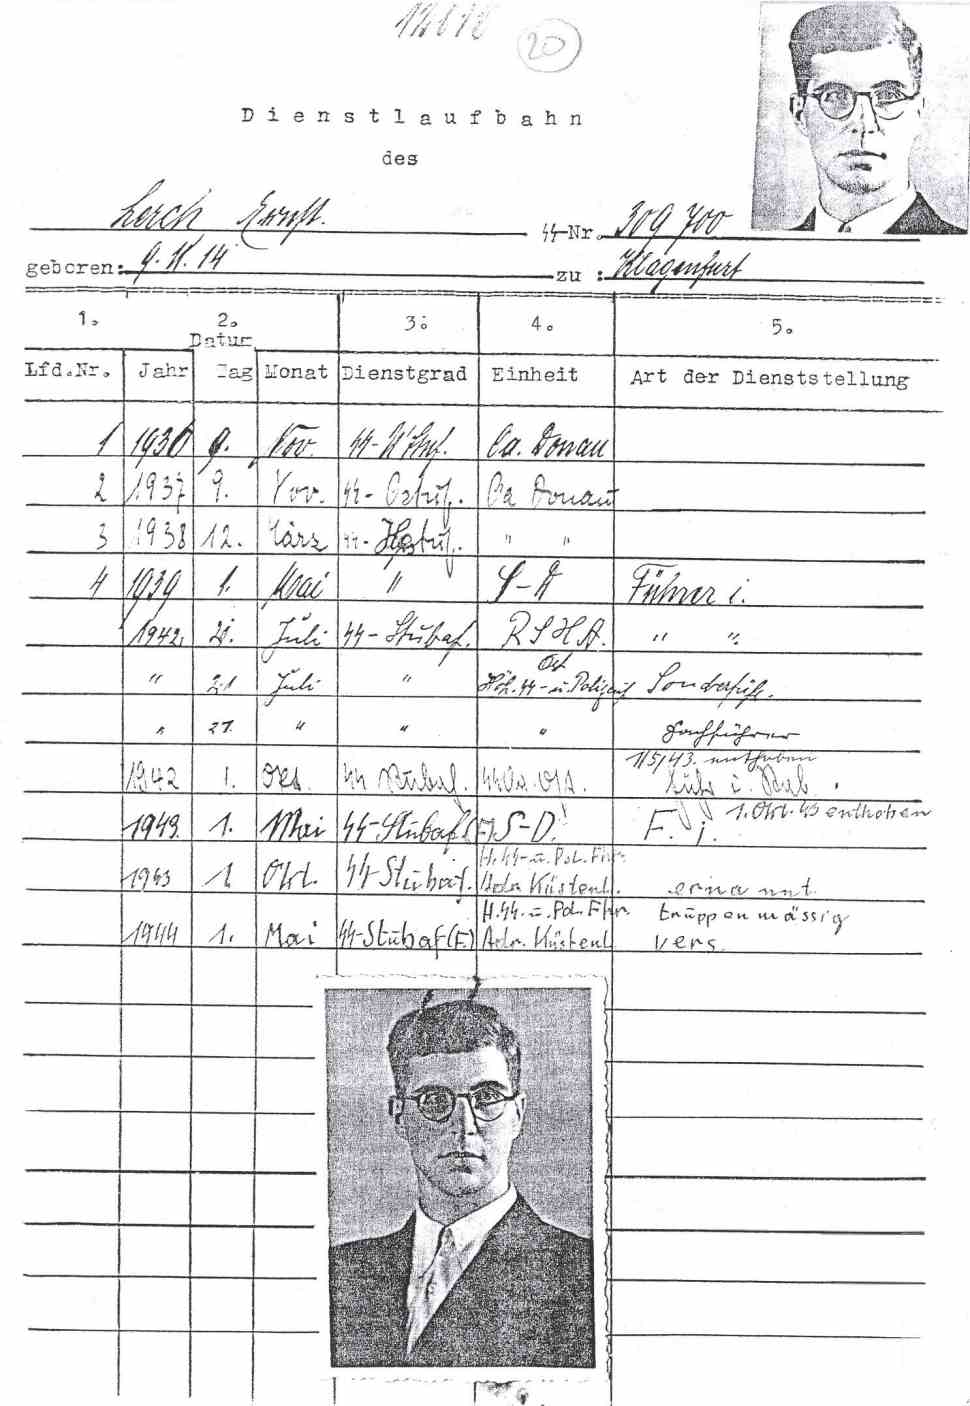 20
Dienstlaufbahn
des
Lerch Ernst.
SS-Nr. 309 700
geboren: 9. 11. 14 zu : Klagenfurt
1. 2. 3: 4. 5.
Datum
Lfd.Nr. Jahr Tag Monat Dienstgrad Einheit Art der Dienststellung
1 1936 9. Nov. SS-U'Stuf. Oa. Donau
2 1937 9. Nov. SS-Ostuf. Oa Donau
3 1938 12. März SS-Hpstuf. " "
4 1939 1. Mai " S-D Führer i.
1942. Juli SS-Stubaf. RSHA. " "
Ost
" 21 Juli " Höh. SS-u. Polizeif
" 21. " " " Fachführer
1/5/43. enthoben
1942 1. Okt. SS Stubaf. i. Stab.
1. Okt. 43 enthoben
1943. 1. Mai SS-Stubaf. (F) S-D. F. i.
H. SS-u. Pol. Fhr.
1943 1. Okt. SS-Stubaf. Adr. Küstenl. ernannt.
H. SS. u. Pol. Fhr. truppenmässig
1944 1. Mai SS-Stubaf (F.) Adr. Küstenl. vers.